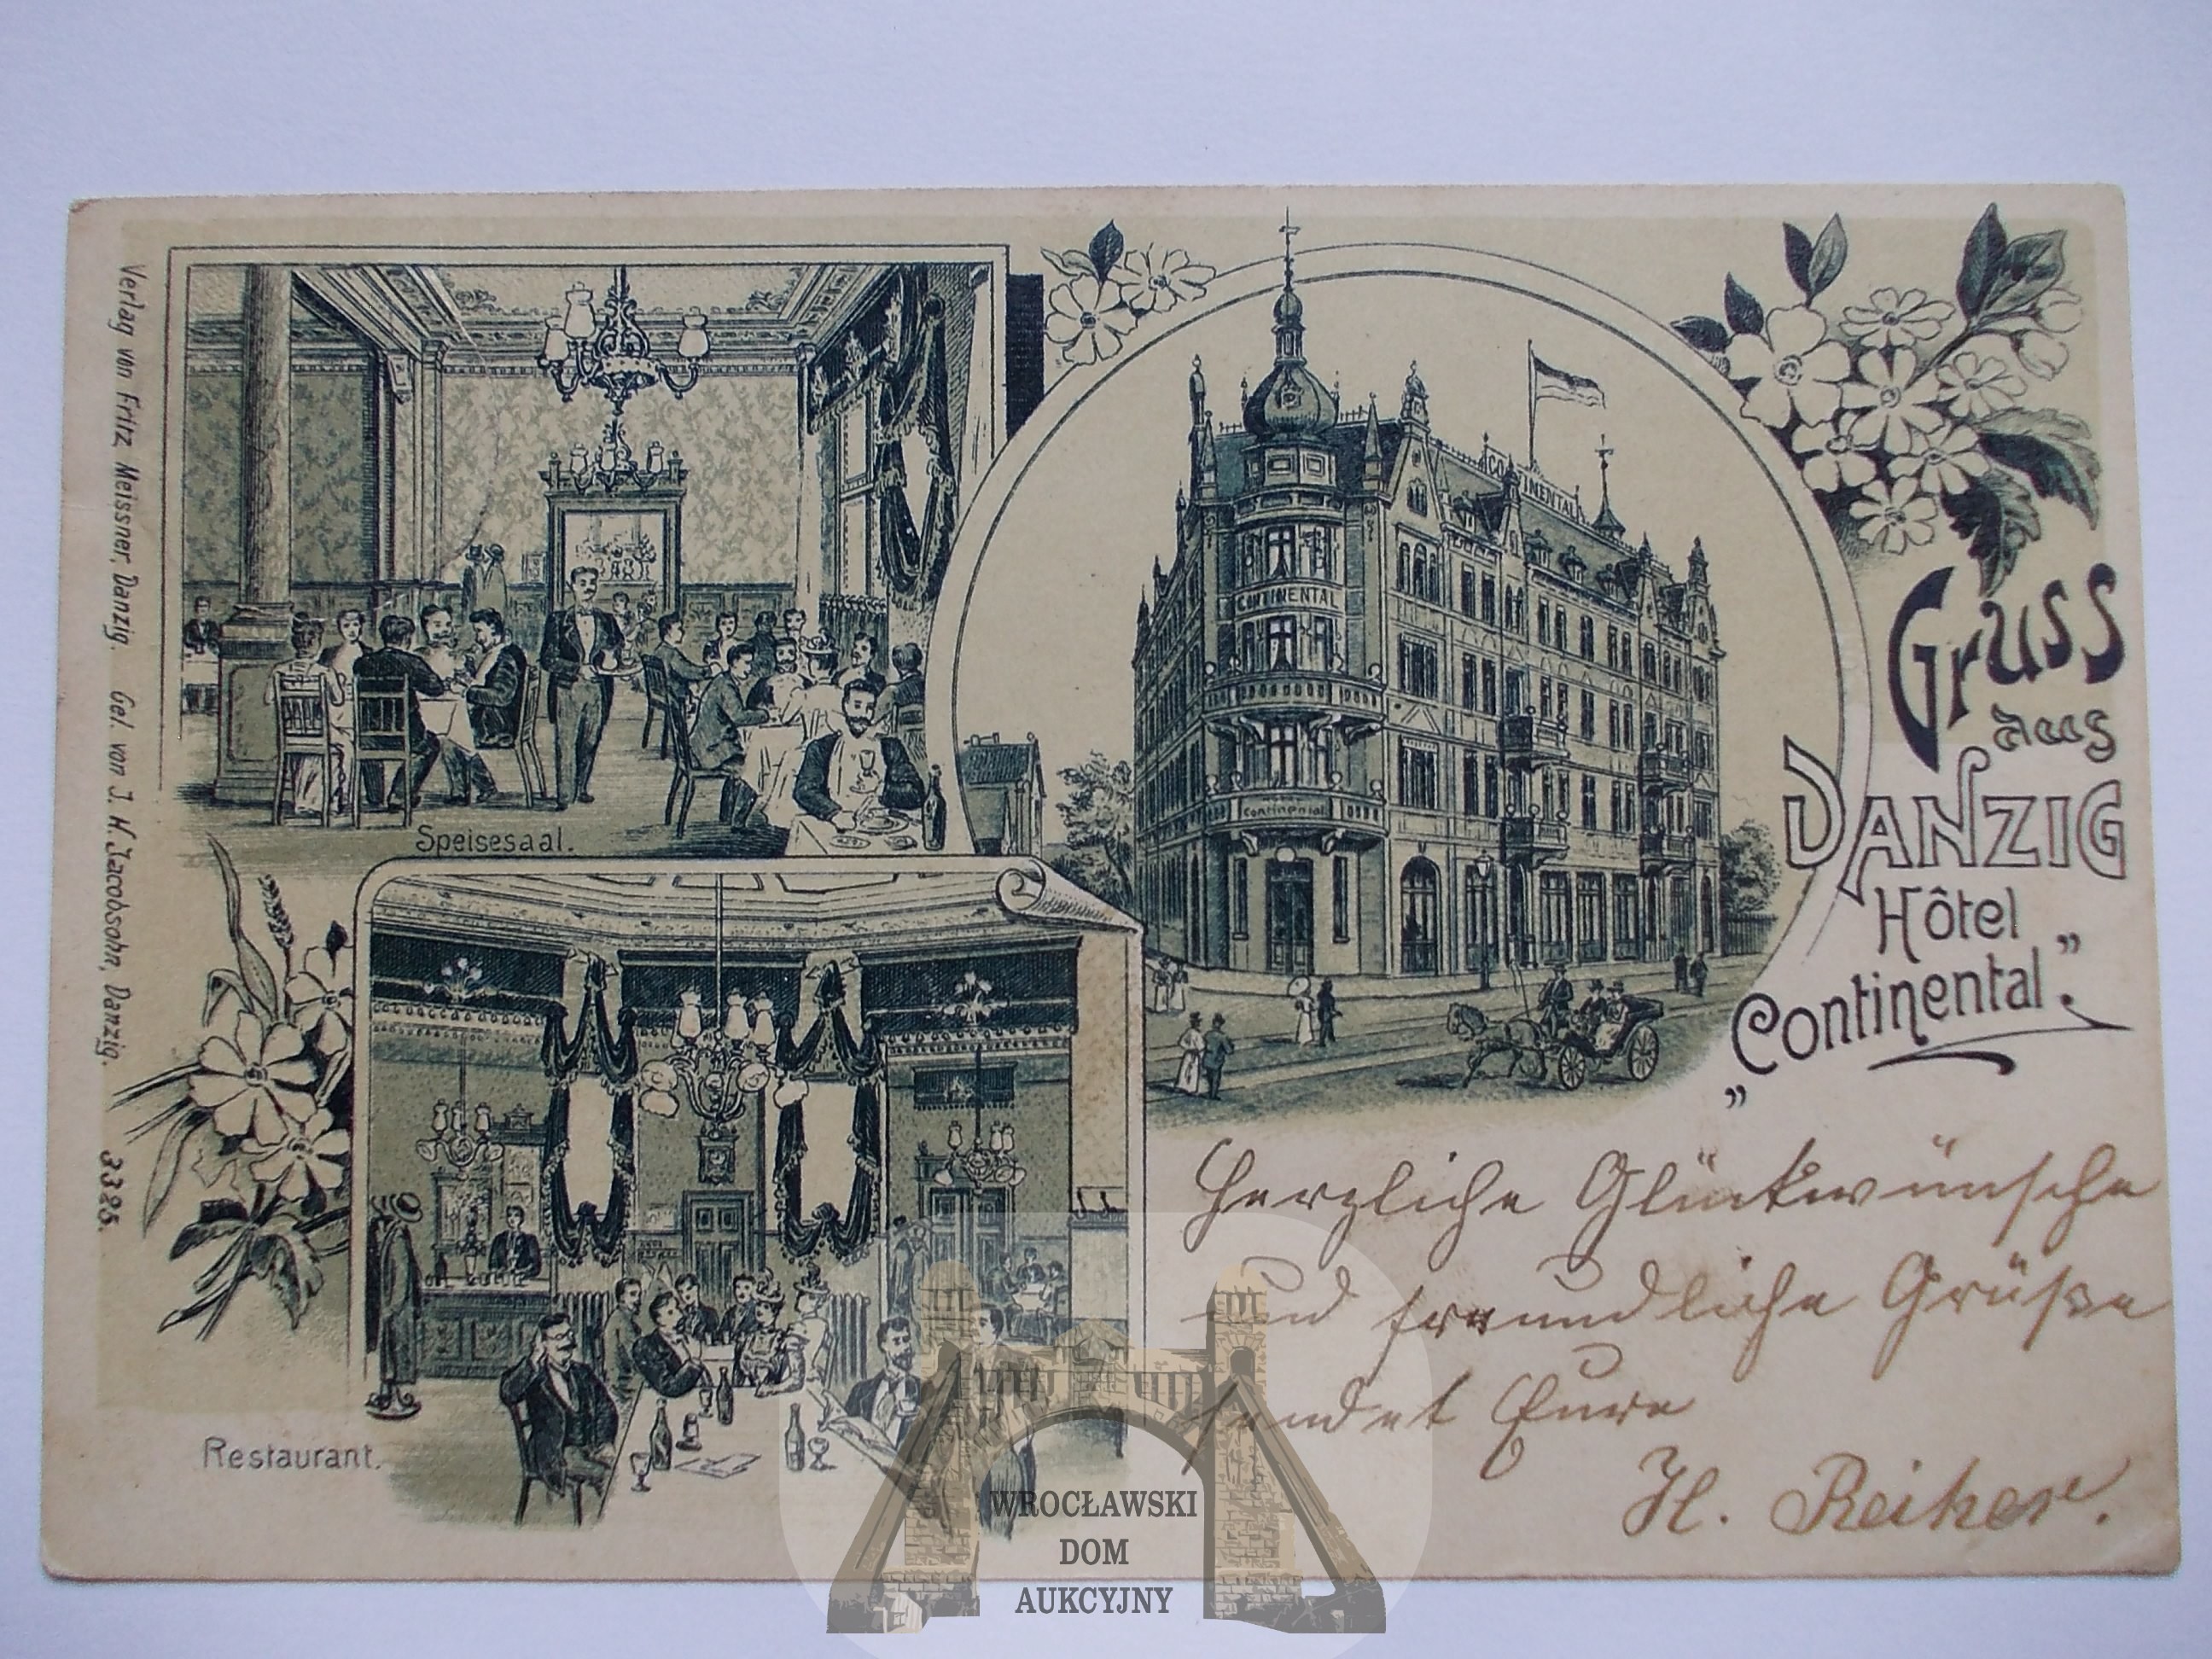 Verlag von Fritz Meissner, Danzig. Gel. von J. H. Jacobsohn, Danzig. 3385.
Speisesaal.
Restaurant.
CONTINENTAL
CONTINENTAL
Continental
Gruss
aus
DANZIG
Hôtel
„Continental”.
Herzliche Glückwünsche
und freundliche Grüße
sendet Eure
H. Reiker.
WROCŁAWSKI
DOM
AUKCYJNY